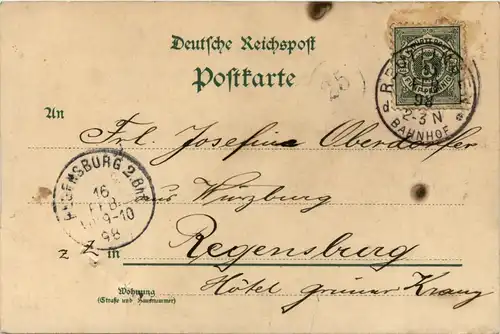 Deutsche Reichspost
Postkarte
25
An
Frl. Josefine Oberdorfer
aus Würzburg
z. Z. in Regensburg
Hôtel grüner Kranz
Wohnung
(Straße und Hausnummer)
REGENSBURG 2. Bhf
16
FEB.
9-10
98
98
2-3 N
BAHNHOF
5